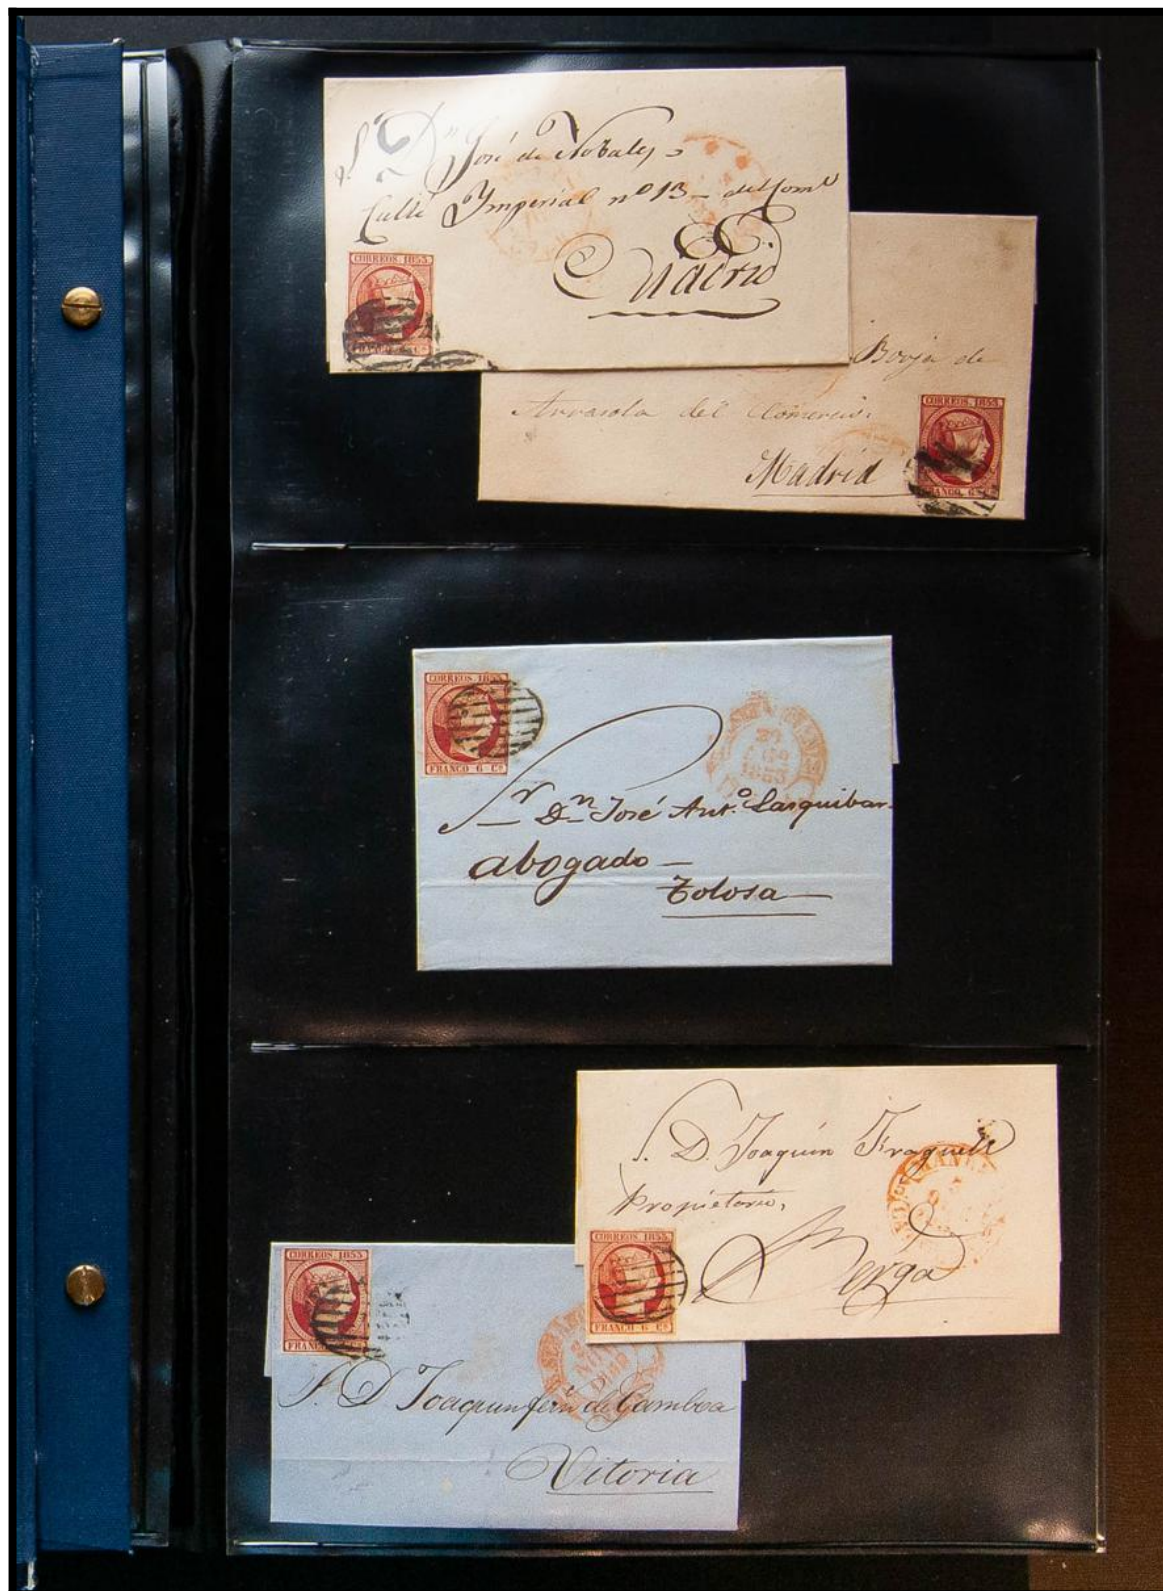 S. Dn José de Nobales
Calle Imperial nº 13 - del Comº
Madrid
CORREOS. 1853
FRANCO 6 Cs
Borja de
Arrasola del Comercio.
Madrid
CORREOS. 1853
FRANCO. 6 Cs
CORREOS. 1853
FRANCO 6 Cs
1853
Sr Dn José Antº Lasquibar
abogado —
Tolosa —
S. D. Joaquín
Propietario,
Berga
CORREOS. 1853
FRANCO 6 Cs
CORREOS. 1853
FRANCO 6 Cs
S. D. Joaquin fern de Gamboa
Vitoria